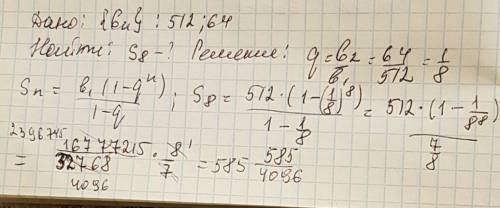 Дано: {bn} : 512 ; 64
Найти: S8 - ? Решение: q = b2/b1 = 64/512 = 1/8
Sn = b1(1-qⁿ)/1-q ; S8 = 512·(1-(1/8)⁸)/1-1/8 = 512·(1-1/8⁸)/7/8
2396745
= 16777215/32768 · 8/7 = 585 585/4096
4096 1